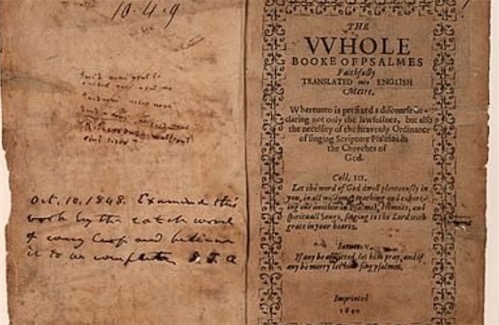 10.4.9
Oct. 10, 1848. Examined this
work by the catch word
of every and believe
it to be complete. S. J. A
THE
VVHOLE
BOOKE OF PSALMES
Faithfully
TRANSLATED into ENGLISH
Metre.
Whereunto is prefixed a discourse de-
claring not only the lawfullnes, but also
the necessity of the heavenly Ordinance
of singing Scripture Psalmes in
the Churches of
God.
Coll. III.
Let the word of God dwell plenteously in
you, in all wisdome, teaching and exhort-
ing one another in Psalmes, Himnes, and
spirituall Songs, singing to the Lord with
grace in your hearts.
Iames v.
If any be afflicted, let him pray, and if
any be merry let him sing psalmes.
Imprinted
1640